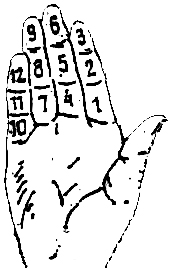 9 6 3
12 8 5 2
11 7 4 1
10